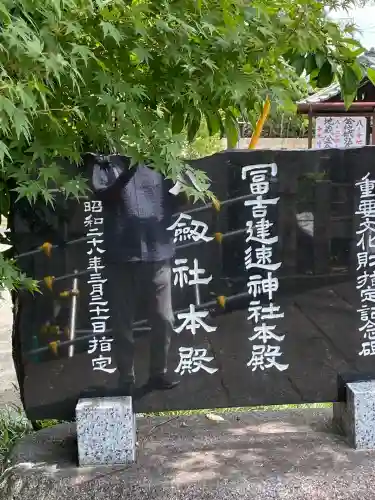 重要文化財指定記念碑
冨吉建速神社本殿
八剱社本殿
昭和二十八年三月三十一日指定